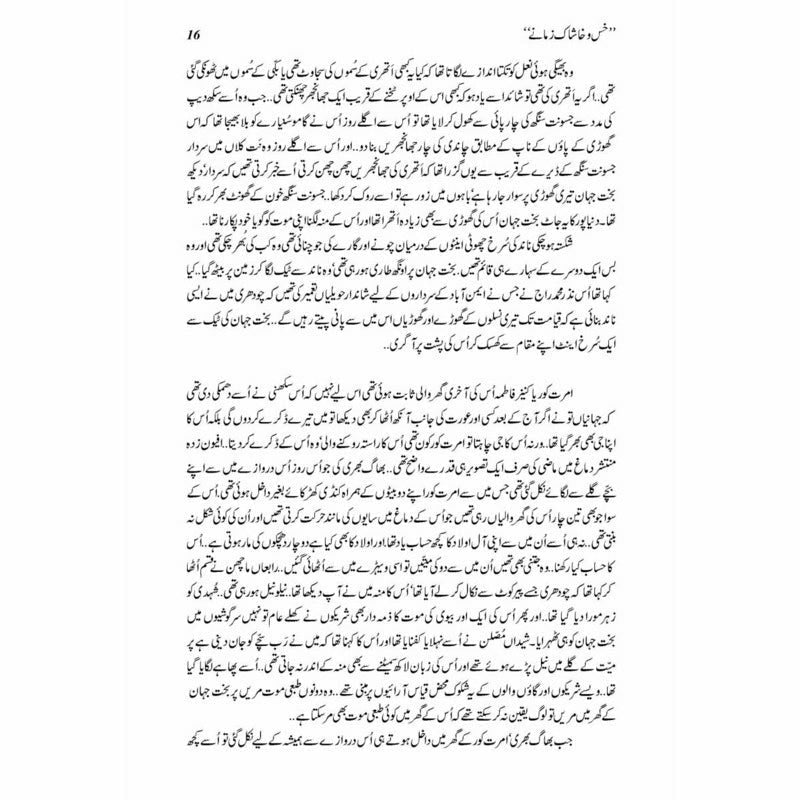 ’’خس و خاشاک زمانے‘‘ 16
وہ بھیگی ہوئی نعل کو تکتا اندازے لگاتا تھا کہ کیا یہ کبھی اَتھری کے سُموں کی سجاوٹ تھی یا بلّی کے سُموں میں ٹھونکی گئی
تھی.. اگر یہ اَتھری کی تھی تو شائد اسے یاد ہو کہ کبھی اس کے اوپر ٹخنے کے قریب ایک جھانجھر چھنکتی تھی.. جب وہ اُسے سکھ دیپ
کی مدد سے جسونت سنگھ کی چارپائی سے کھول کر لایا تھا تو اُس سے اگلے روز اُس نے گاموسُنیارے کو بلا بھیجا تھا کہ اس
گھوڑی کے پاؤں کے ناپ کے مطابق چاندی کی چار جھانجھریں بنا دو.. اور اُس سے اگلے روز وہ نت کلاں میں سردار
جسونت سنگھ کے ڈیرے کے قریب سے یوں گزرا تھا کہ اَتھری کی جھانجھریں چھن چھن کرتی اُسے خبر کرتی تھیں کہ سردار‘ دیکھ
بخت جہان تیری گھوڑی پر سوار جا رہا ہے‘ باہوں میں زور ہے تو اسے روک کر دکھا.. جسونت سنگھ خون کے گھونٹ بھر کر رہ گیا
تھا۔ دنیا پور کا یہ جاٹ بخت جہان اُس کی گھوڑی سے بھی زیادہ اَتھرا تھا اور اُس کے منہ لگنا اپنی موت کو گویا خود پکارنا تھا..
شکستہ ہو چکی ناند کی سُرخ چھوٹی اینٹوں کے درمیان چونے اور گارے کی جو چنائی تھی وہ کب کی بُھر چکی تھی اور وہ
بس ایک دوسرے کے سہارے ہی قائم تھیں.. بخت جہان پر اونگھ طاری ہو رہی تھی‘ وہ ناند سے ٹیک لگا کر زمین پر بیٹھ گیا.. کیا
کہا تھا اُس نذر محمد راج نے جس نے ایمن آباد کے سرداروں کے لیے شاندار حویلیاں تعمیر کی تھیں کہ چودھری میں نے ایسی
ناند بنائی ہے کہ قیامت تک تیری نسلوں کے گھوڑے اور گھوڑیاں اس میں سے پانی پیتے رہیں گے.. بخت جہان کی ٹیک سے
ایک سُرخ اینٹ اپنے مقام سے کھسک کر اُس کی پشت پر آ گری..
امرت کور یا کنیز فاطمہ اُس کی آخری گھر والی ثابت ہوئی تھی اس لیے نہیں کہ اُس سکھنی نے اُسے دھمکی دی تھی
کہ جہانیاں تو نے اگر آج کے بعد کسی اور عورت کی جانب آنکھ اُٹھا کر بھی دیکھا تو میں تیرے ڈکرے کر دوں گی بلکہ اُس کا
اپنا جی بھی بھر گیا تھا.. ورنہ اُس کا جی چاہتا تو امرت کور کون تھی اُس کا راستہ روکنے والی‘ وہ اُس کے ڈکرے کر دیتا.. افیون زدہ
منتشر دماغ میں ماضی کی صرف ایک تصویر ہی قدرے واضح تھی.. بھاگ بھری کی جو اُس روز اُس دروازے میں سے اپنے
بچے گلے سے لگائے نکل گئی تھی جس میں سے امرت کور اپنے دو بیٹوں کے ہمراہ کنڈی کھڑکائے بغیر داخل ہوئی تھی. اُس کے
سوا جو بھی تین چار اُس کی گھر والیاں رہی تھیں جو اُس کے دماغ میں سایوں کی مانند حرکت کرتی تھیں اور اُن کی کوئی شکل نہ
بنتی تھی.. نہ ہی اُسے اُن میں سے اپنی آل اولاد کا کچھ حساب یاد تھا. اور اولاد کا بھی کیا ہے دو چار دھچکوں کی مار ہوتی ہے.. اُس
کا حساب کیا رکھنا.. وہ جتنی بھی تھیں اُن میں سے دو کی میتیں تو اسی ویہڑے میں سے اُٹھائی گئیں.. رابعاں ماچھن نے قسم اُٹھا
کر کہا تھا کہ چودھری جسے پیر کوٹ سے نکال کر لے آیا تھا‘ اُس کا منہ میں نے آپ دیکھا تھا.. نیلو نیل ہو رہی تھی.. شُہدی کو
زہر مورا دیا گیا تھا.. اور پھر اُس کی ایک اور بیوی کی موت کا ذمہ دار بھی شریکوں نے کھلے عام تو نہیں سرگوشیوں میں
بخت جہان کو ہی ٹھہرایا۔ شیداں مُصلن نے اُسے نہلایا کفنایا تھا اور اُس کا کہنا تھا کہ میں نے رَب سچے کو جان دینی ہے پر
میت کے گلے میں نیل پڑے ہوئے تھے اور اُس کی زبان لاکھ سمیٹنے سے بھی منہ کے اندر نہ جاتی تھی.. اُسے پھاہے لگایا گیا
تھا.. ویسے شریکوں اور گاؤں والوں کے یہ شکوک محض قیاس آرائیوں پر مبنی تھے.. وہ دونوں طبعی موت مریں پر بخت جہان
کے گھر میں مریں تو لوگ یقین نہ کر سکتے تھے کہ اُس کے گھر میں کوئی طبعی موت بھی مر سکتا ہے..
جب بھاگ بھری‘ امرت کور کے گھر میں داخل ہوتے ہی اُس دروازے سے ہمیشہ کے لیے نکل گئی تو اُسے کچھ